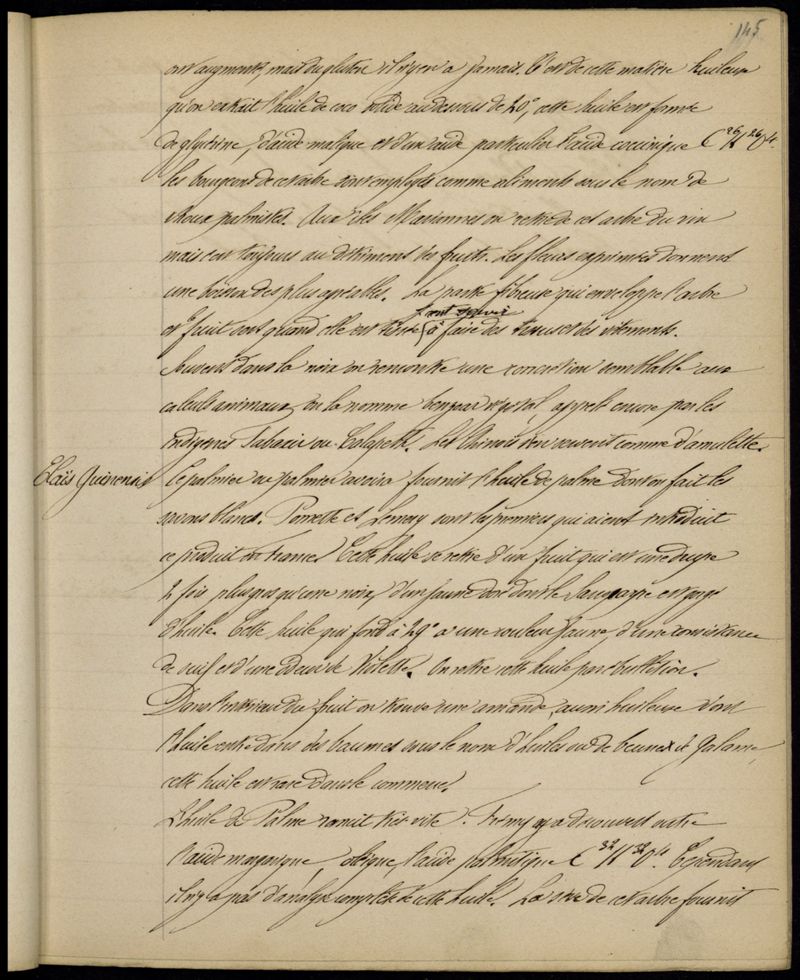 145
ont augmenté, mais du gluten il n'y en a jamais. C'est de cette matière huileuse
qu'on extrait l'huile de coco solide au dessous de 20°, cette huile est formée
de glycérine, d'acide et d'un acide particulier l'acide coccinique C26H26O4.
les bourgeons de cet arbre sont employés comme aliments sous le nom de
choux palmistes. Aux îles Mariannes on retire de cet arbre du vin
mais c'est toujours au détriment des fruits. Les fleurs exprimées donnent
une boisson des plus agréables. La partie fibreuse qui enveloppe l'arbre
et fruit sont quand elle est
font servir
à faire des tissus et des vêtements.
Souvent dans la noix on rencontre une concrétion semblable aux
calculs animaux, on la nomme bezoar végétal, appelé encore par les
indigènes Tabaxir ou Calapette. Les Chinois s'en servent comme d'amulette.
Elaïs Guineensis
Ce palmier ou palmier avoira fournit l'huile de palme dont on fait les
savons blancs. et sont les premiers qui aient introduit
ce produit en France. Cette huile se retire d'un fruit qui est une drupe
2 fois plus gros qu'une noix, d'un jaune doré dont le sarcocarpe est gorgé
d'huile. Cette huile qui fond à 29° a une couleur jaune, d'une consistance
de suif et d'une odeur de Violette. On retire cette huile par ébullition.
Dans l'intérieur du fruit on trouve une amande, aussi huileuse dont
l'huile entre dans des baumes sous le nom d'huiles ou de beurre de Galame,
cette huile est rare dans le commerce.
L'huile de Palme rancit très vite. Frémy y a découvert outre
l'acide margarique, oléique, l'acide palmitique C32H32O4. Cependant
il n'y a pas d'analyse complète de cette huile. La sève de cet arbre fournit